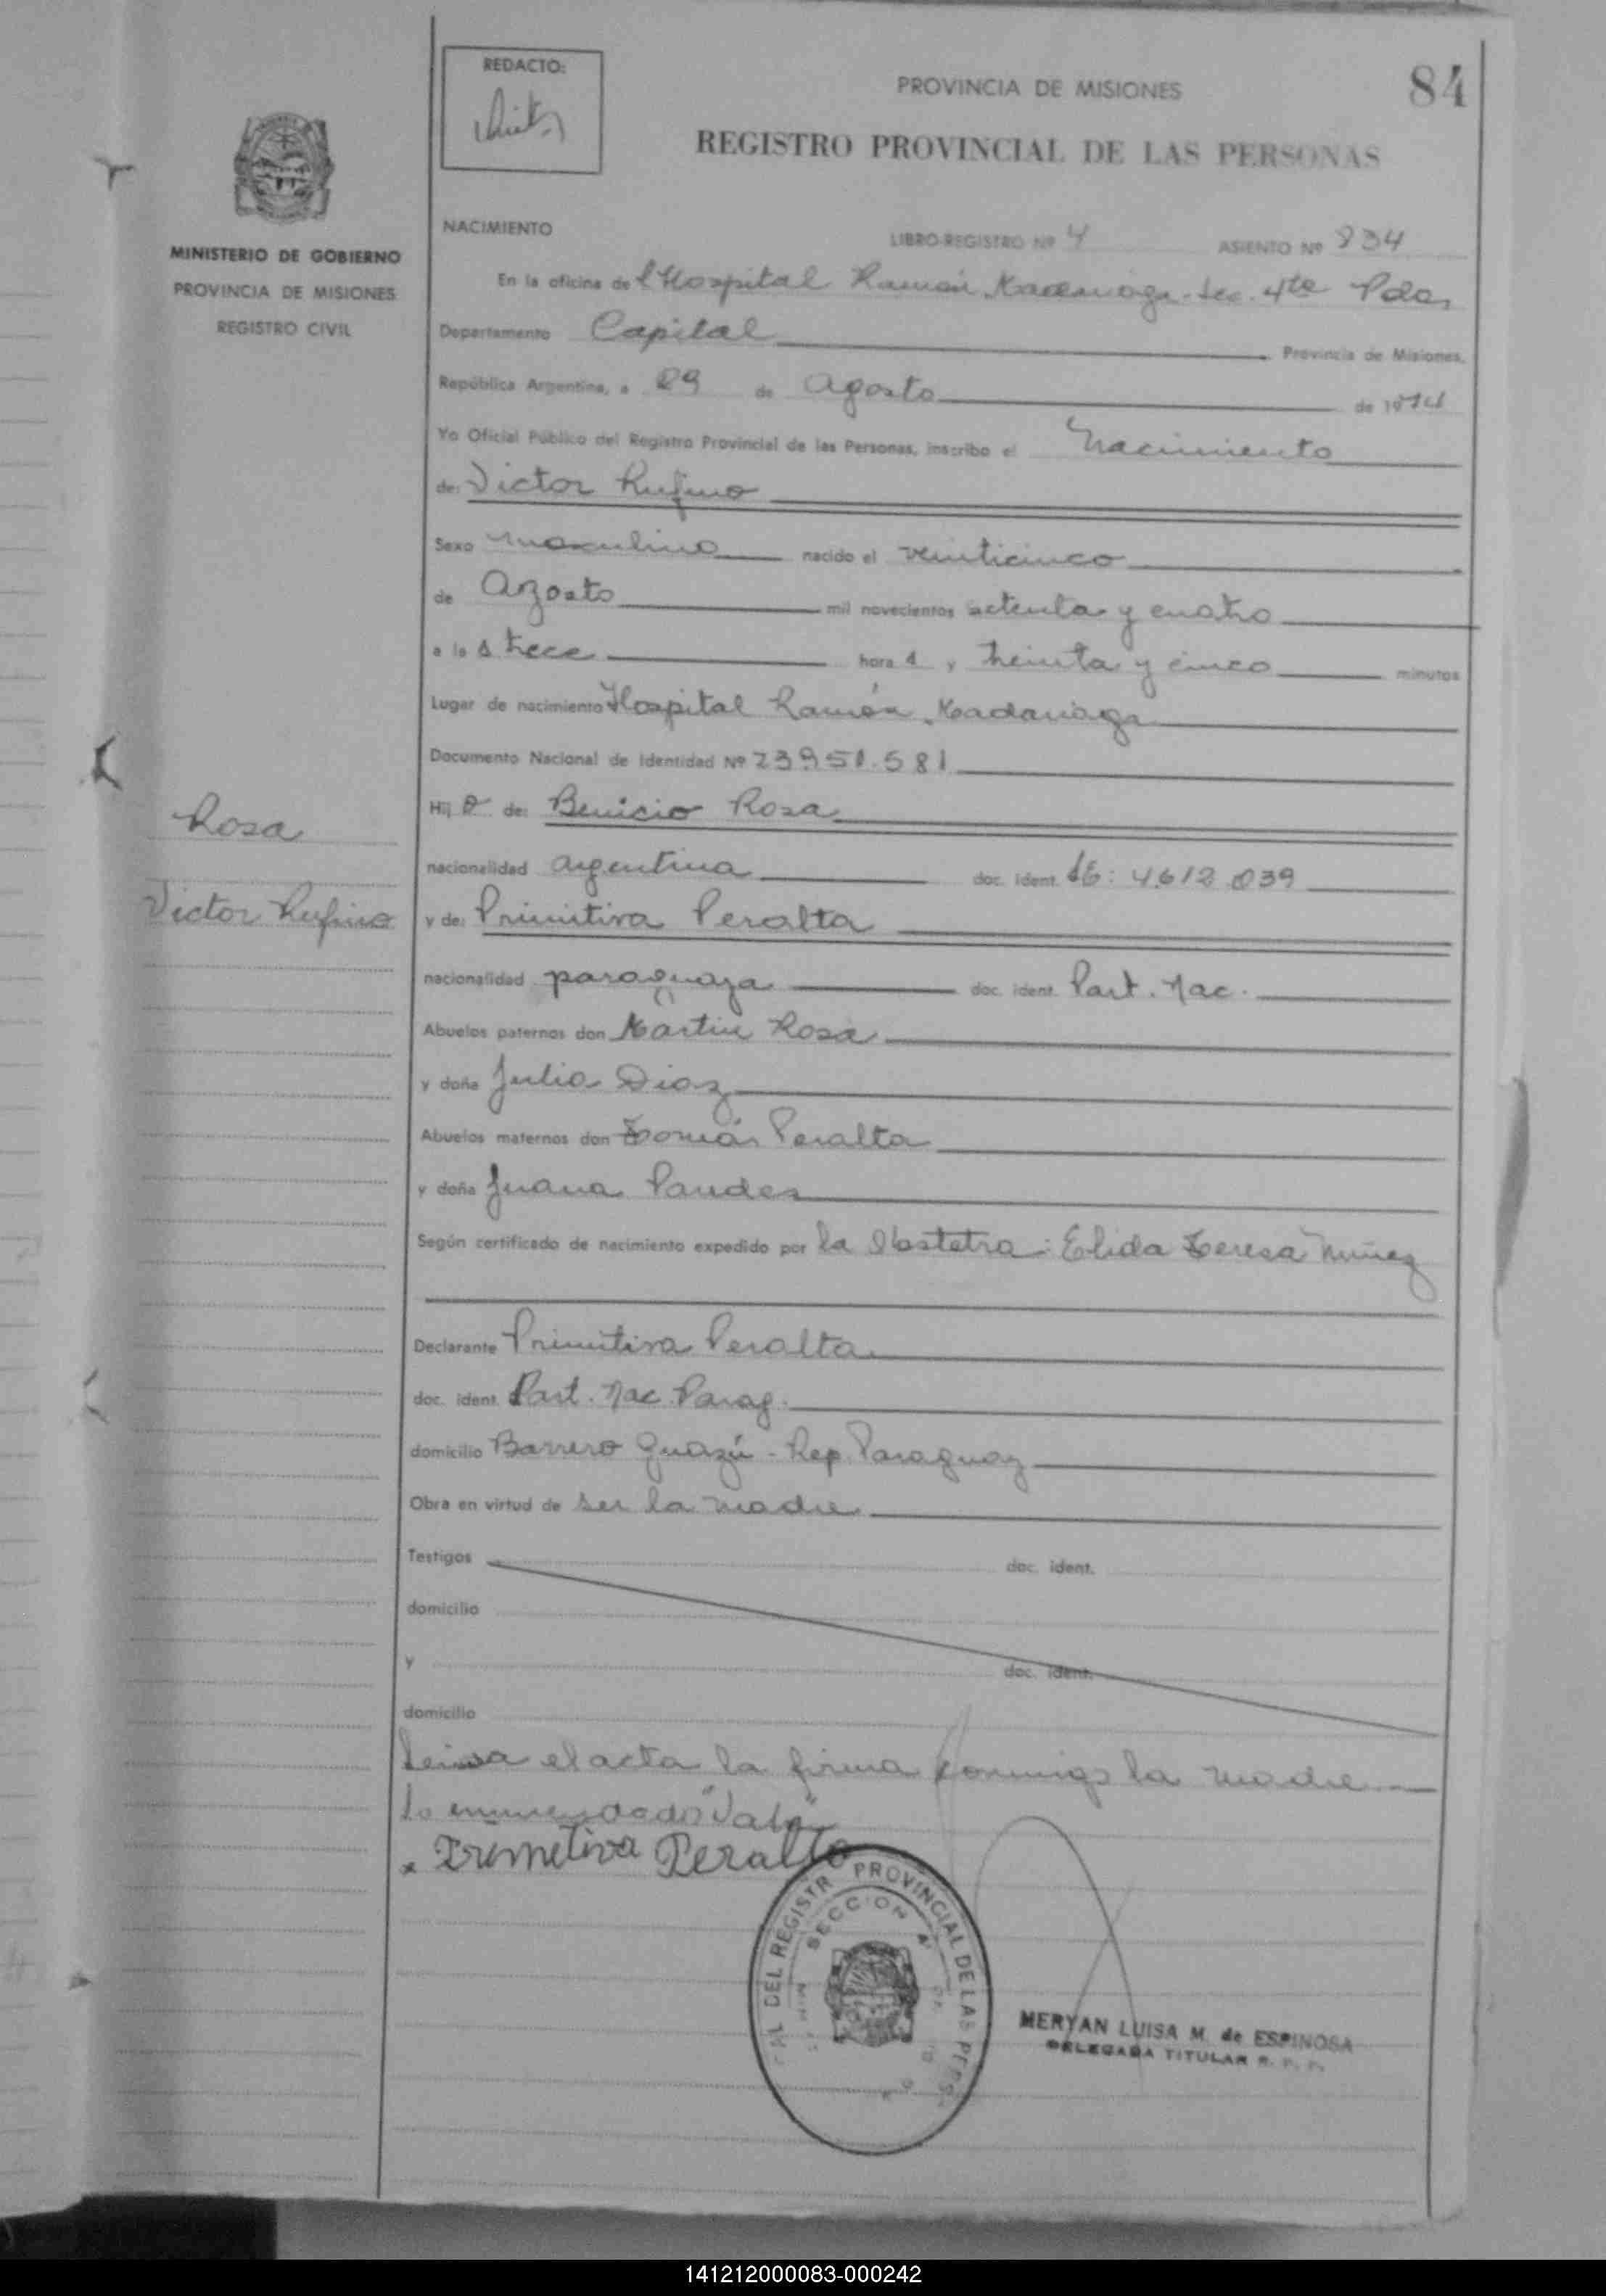 REDACTO:
PROVINCIA DE MISIONES
84
REGISTRO PROVINCIAL DE LAS PERSONAS
MINISTERIO DE GOBIERNO
PROVINCIA DE MISIONES
REGISTRO CIVIL
NACIMIENTO LIBRO-REGISTRO Nº 4 ASIENTO Nº 834
En la oficina del Hospital Ramón Madariaga - Sec. 4ta Pdas
Departamento Capital Provincia de Misiones,
República Argentina, a 29 de agosto de 1974
Yo Oficial Público del Registro Provincial de las Personas, inscribo el Nacimiento
de: Victor Rufino
Sexo masculino nacido el veinticinco
de Agosto mil novecientos setenta y cuatro
a las trece horas y treinta y cinco minutos
Lugar de nacimiento Hospital Ramón Madariaga
Documento Nacional de Identidad Nº 23.951.581
Hijo de: Benicio Rosa
Rosa
nacionalidad argentina doc. ident. LE: 4.612.039
Victor Rufino
y de: Primitiva Peralta
nacionalidad paraguaya doc. ident. Part. Nac.
Abuelos paternos don Martin Rosa
y doña Julia Diaz
Abuelos maternos don Tomás Peralta
y doña Juana Paredes
Según certificado de nacimiento expedido por la Obstetra: Elida Teresa Nuñez
Declarante Primitiva Peralta
doc. ident. Part. Nac. Parag.
domicilio Barrero Guazú - Rep. Paraguay
Obra en virtud de ser la madre
Testigos doc. ident.
domicilio
y doc. ident.
domicilio
Leida el acta la firma conmigo la madre
Lo enmendado "Vale"
x Primetiva Peralta
DEL REGISTR PROVINCIAL DE LAS PERS
SECCION 4ª
MERYAN LUISA M. de ESPINOSA
DELEGADA TITULAR R. P. P.
141212000083-000242